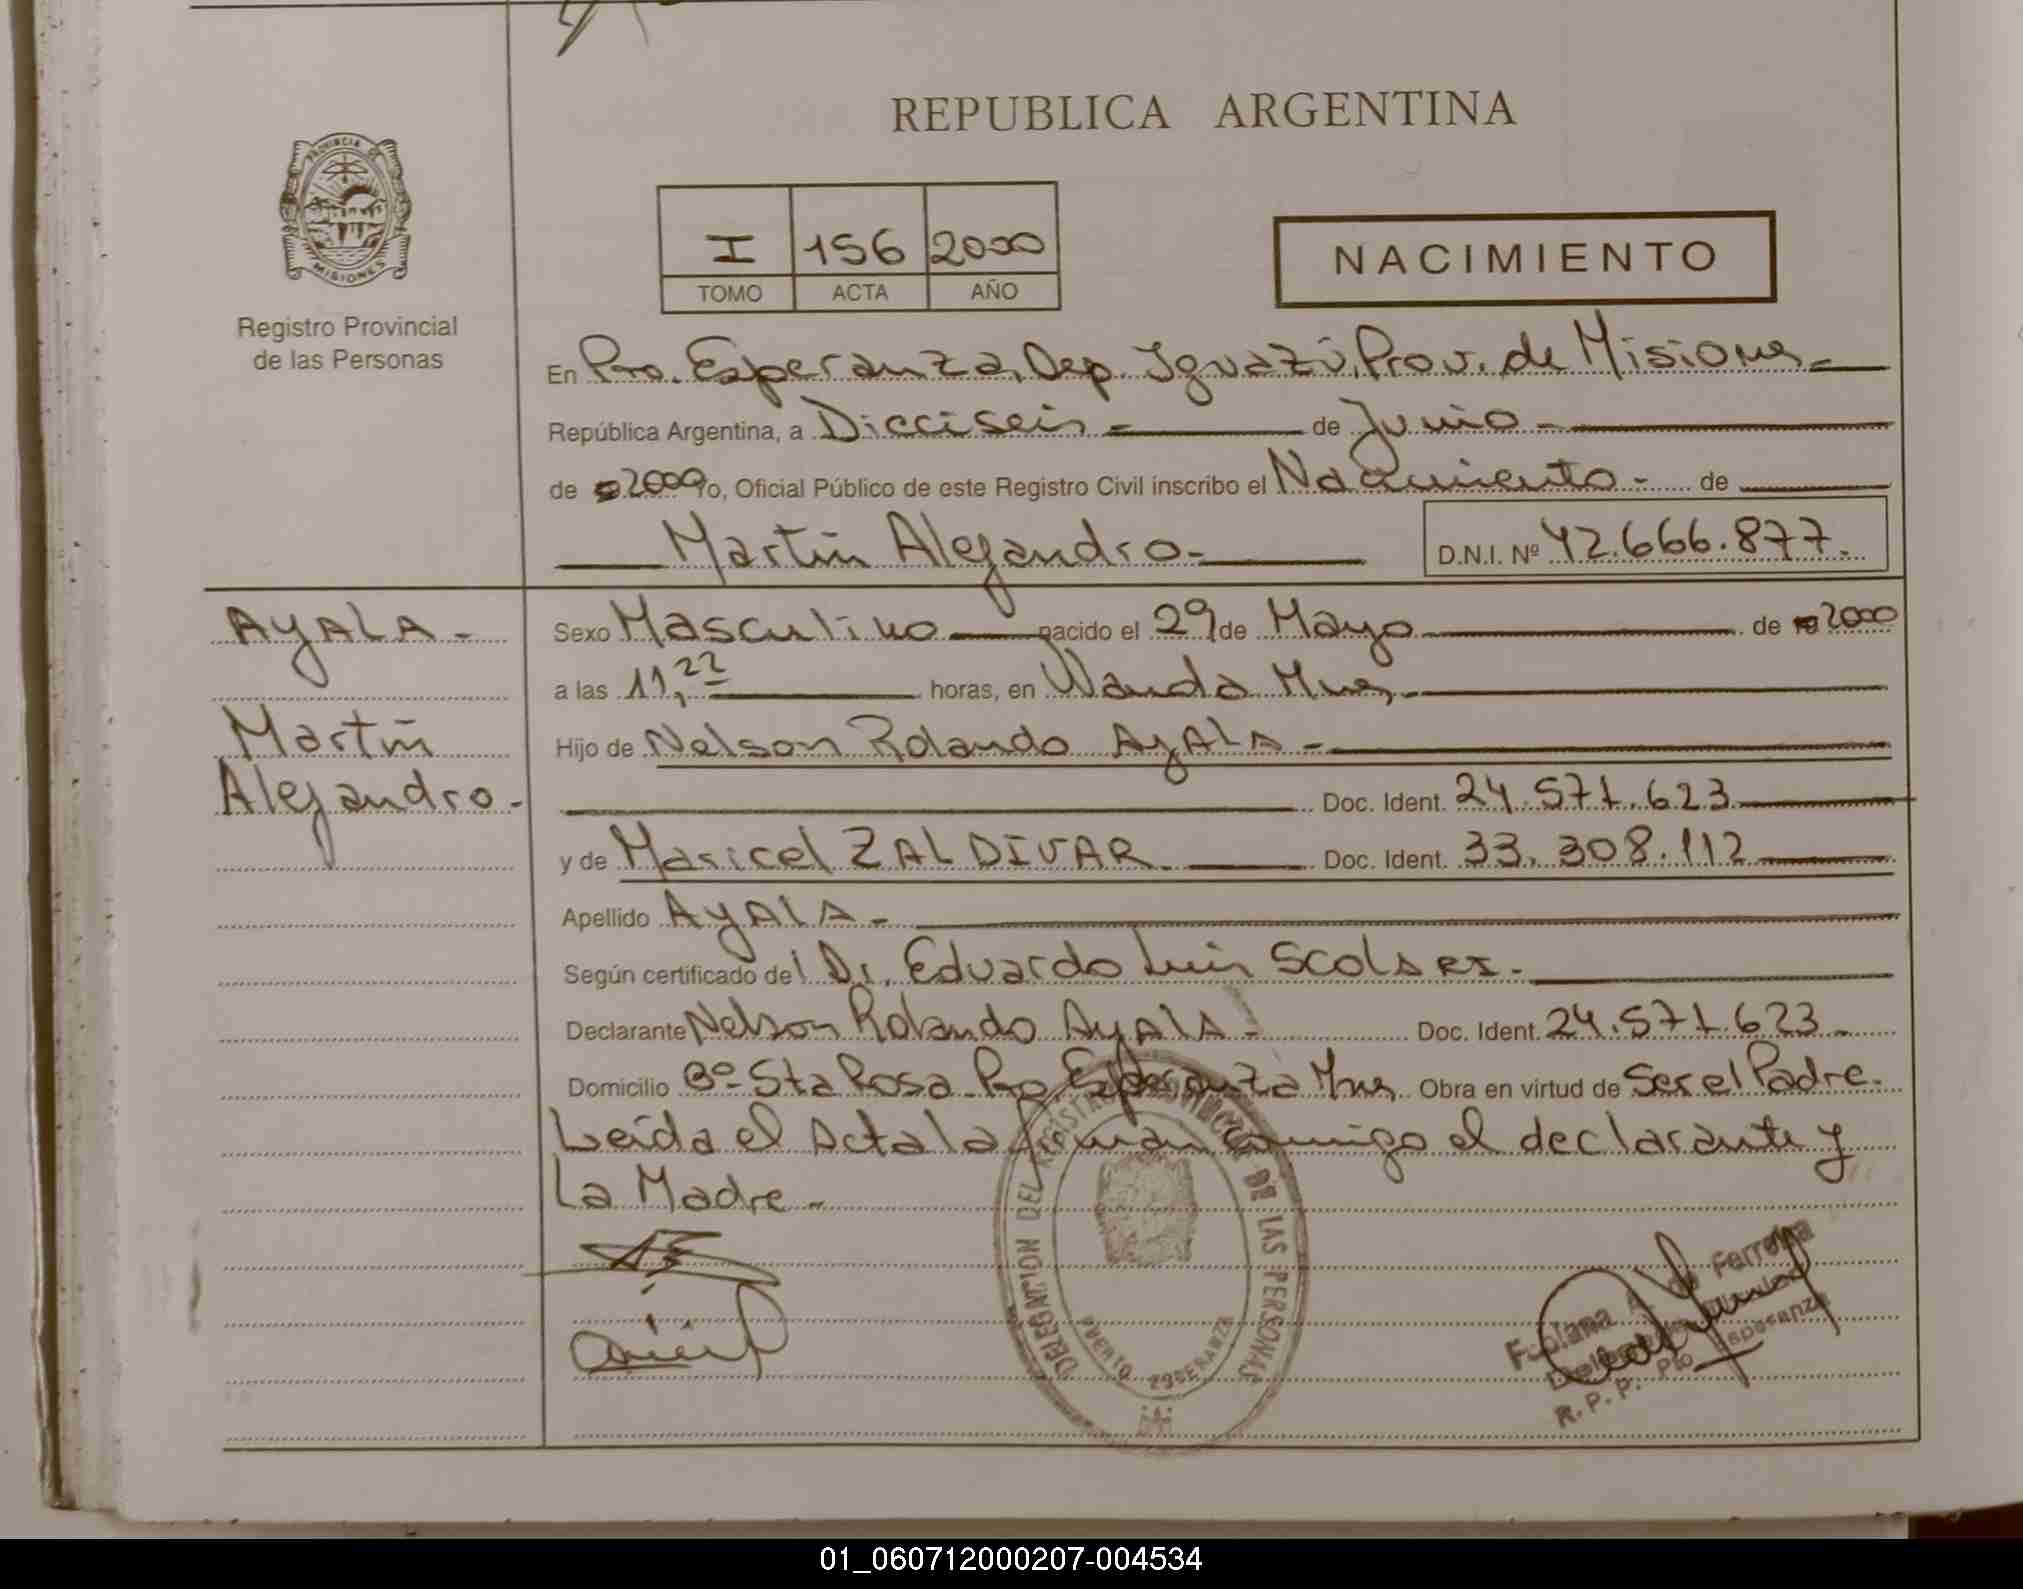 REPUBLICA ARGENTINA
PROVINCIA DE
MISIONES
Registro Provincial
de las Personas
I 156 2000
TOMO ACTA AÑO
NACIMIENTO
En Pto. Esperanza, Dep. Iguazú, Prov. de Misiones
República Argentina, a Dieciseis de Junio
de 2000 Yo, Oficial Público de este Registro Civil inscribo el Nacimiento - de
Martín Alejandro -
D.N.I. Nº 42.666.877.
AYALA -
Martín
Alejandro -
Sexo Masculino nacido el 29 de Mayo de 2000
a las 11,22 horas, en Wanda Mnes,
Hijo de Nelson Rolando AyALA -
Doc. Ident. 24.571.623
y de Maricel ZALDIVAR Doc. Ident. 33.308.112
Apellido AyAlA -
Según certificado del Dr. Eduardo Luis
Declarante Nelson Rolando AyAlA - Doc. Ident. 24.571.623
Domicilio Bº Sta Rosa Pto Esperanza Mnes Obra en virtud de Ser el Padre.
Leída el Acta la firman conmigo el declarante y
La Madre -
DELEGACION DEL REGISTRO PROVINCIAL DE LAS PERSONAS
PUERTO ESPERANZA
A. de Ferreira
R. P. P. Pto Esperanza
01_060712000207-004534